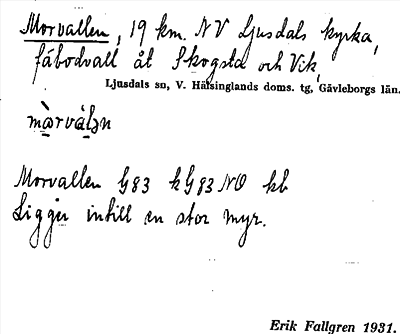 Morvallen, 19 km. NV Ljusdals kyrka,
fäbodvall åt Skogsta och Vik,
Ljusdals sn, V. Hälsinglands doms. tg, Gävleborgs län.
Morvallen G83 kG83NO kb
Ligger intill en stor myr.
Erik Fallgren 1931.